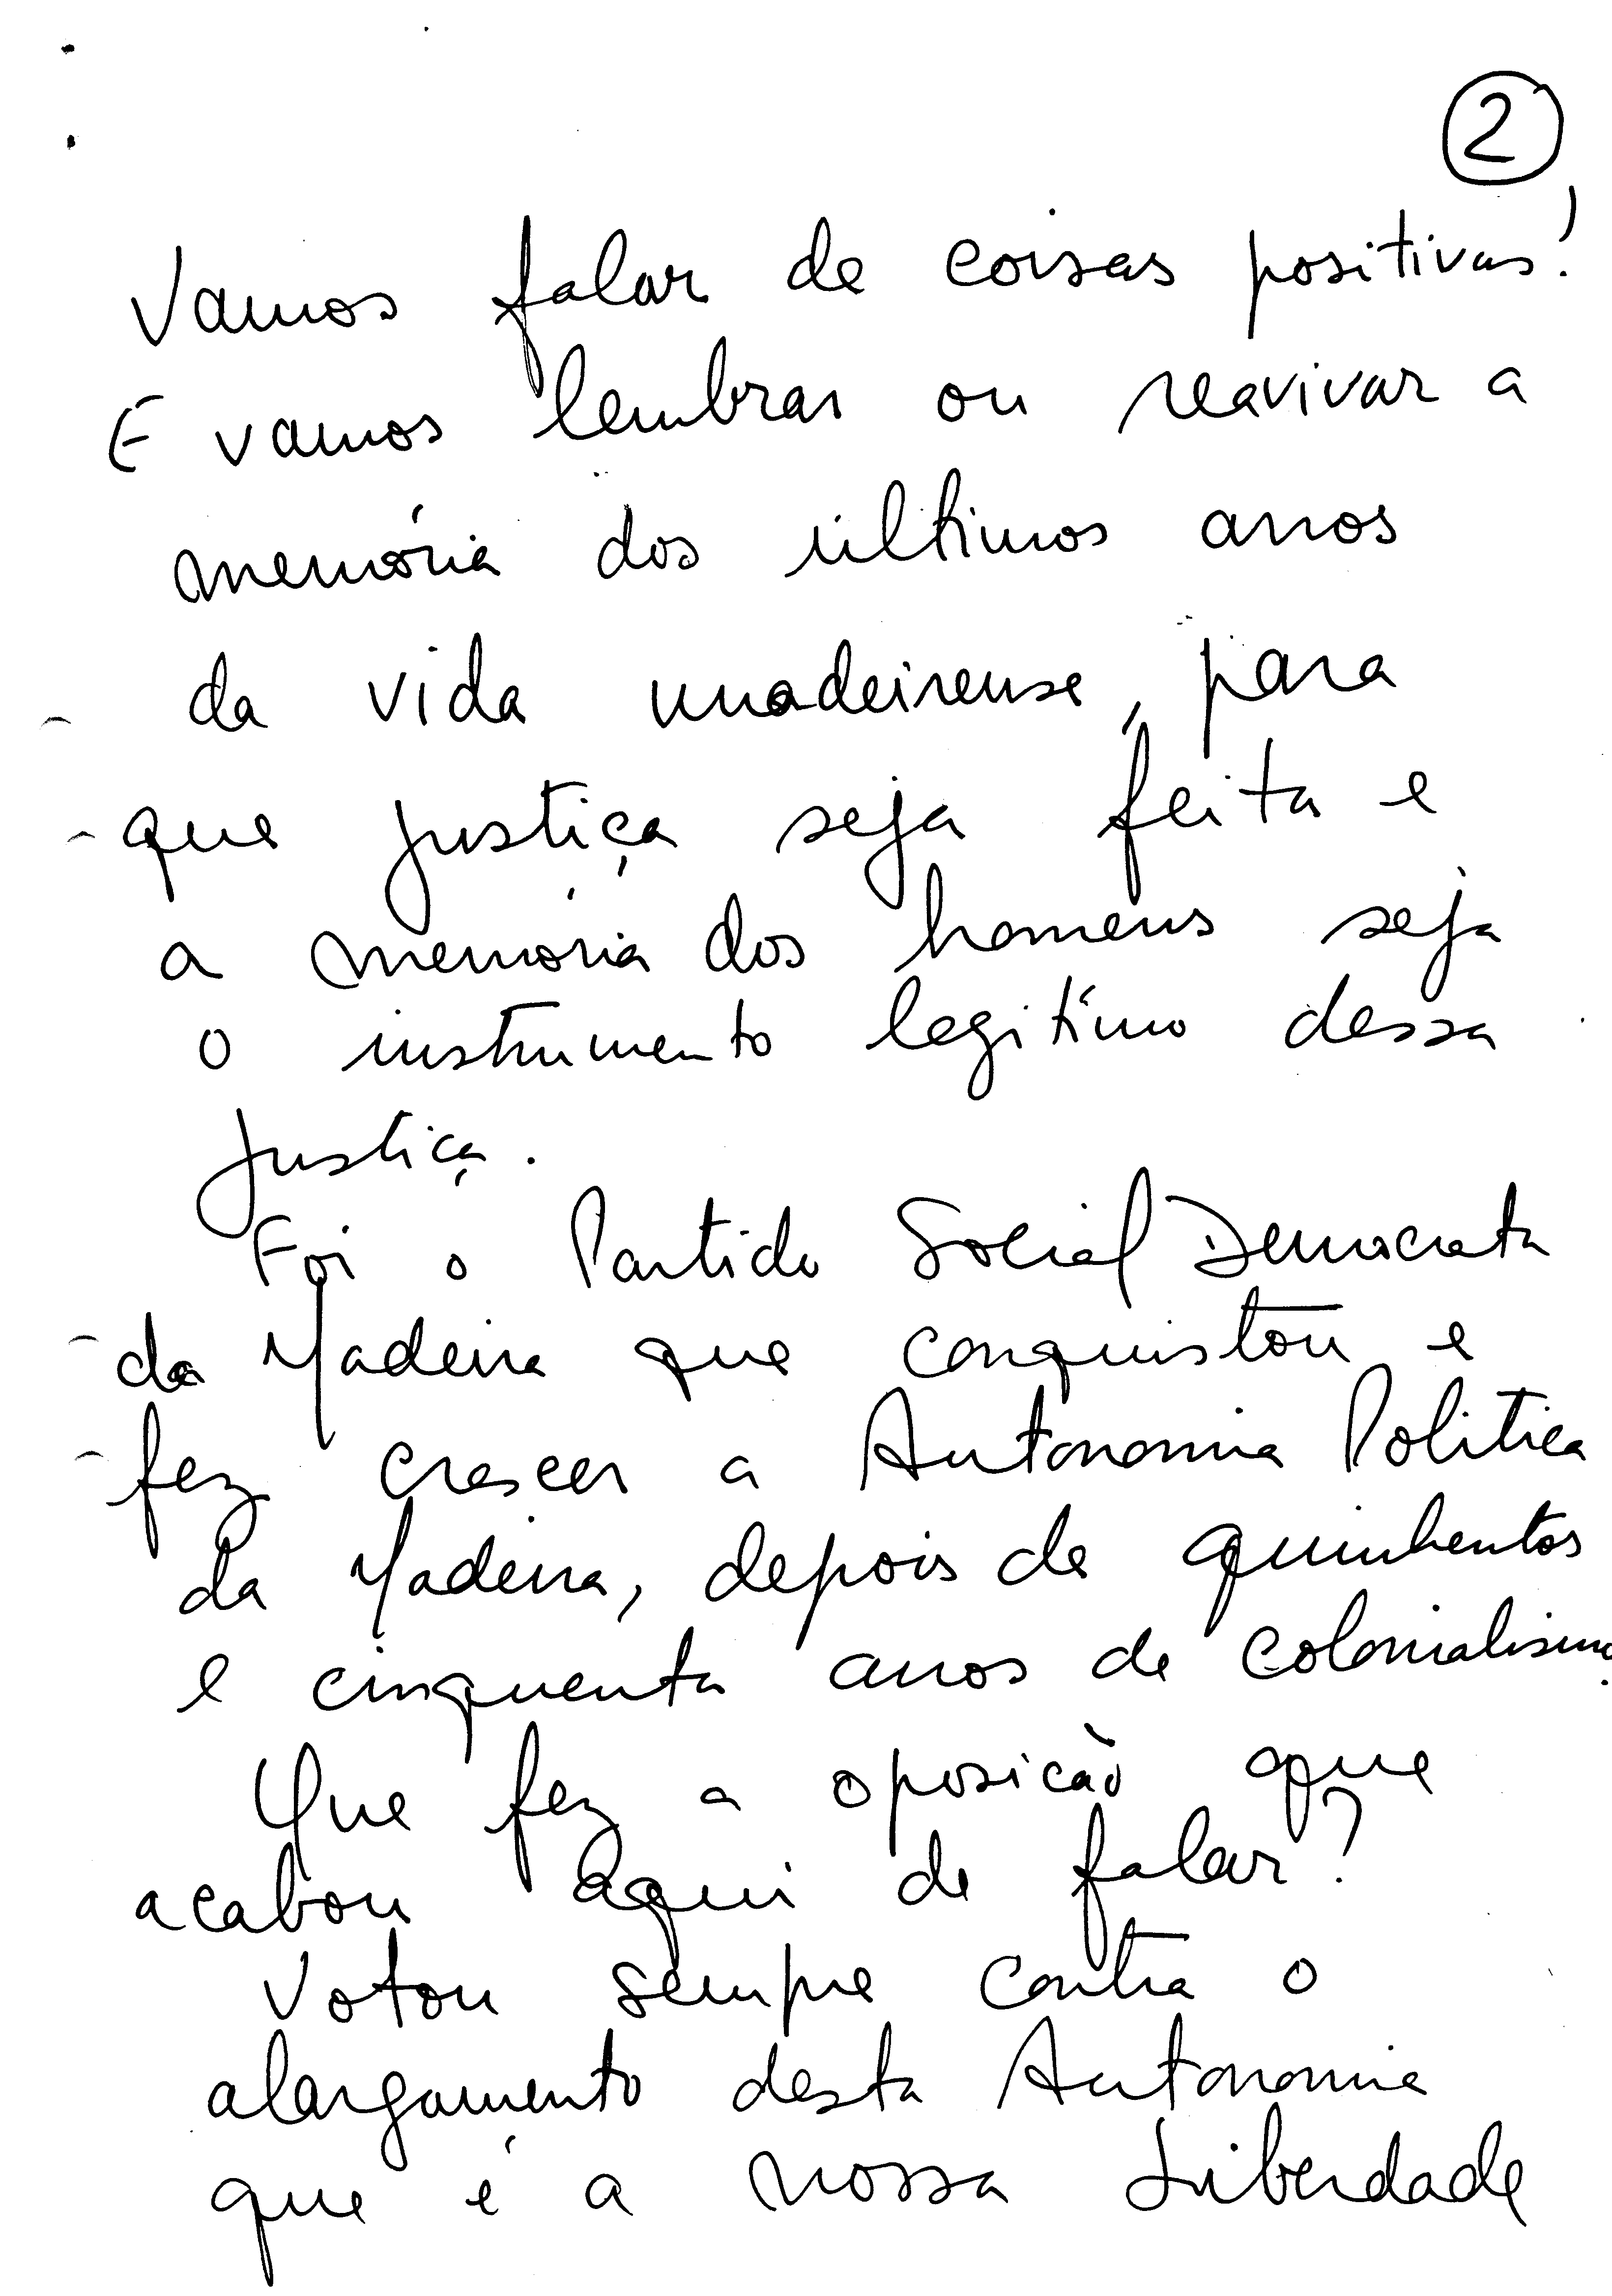 2
Vamos falar de coisas positivas!
E vamos lembrar ou reavivar a
memória dos últimos anos
da vida madeirense, para
que justiça seja feita e
a memória dos homens seja
o instrumento legítimo dessa
justiça.
Foi o Partido Social Democrata
da Madeira que conquistou e
fez crescer a Autonomia Politica
da Madeira, depois de quinhentos
e cinquenta anos de colonialismo.
Que fez a oposicão que
acabou aqui de falar?
Votou sempre contra o
alargamento desta Autonomia
que é a nossa Liberdade